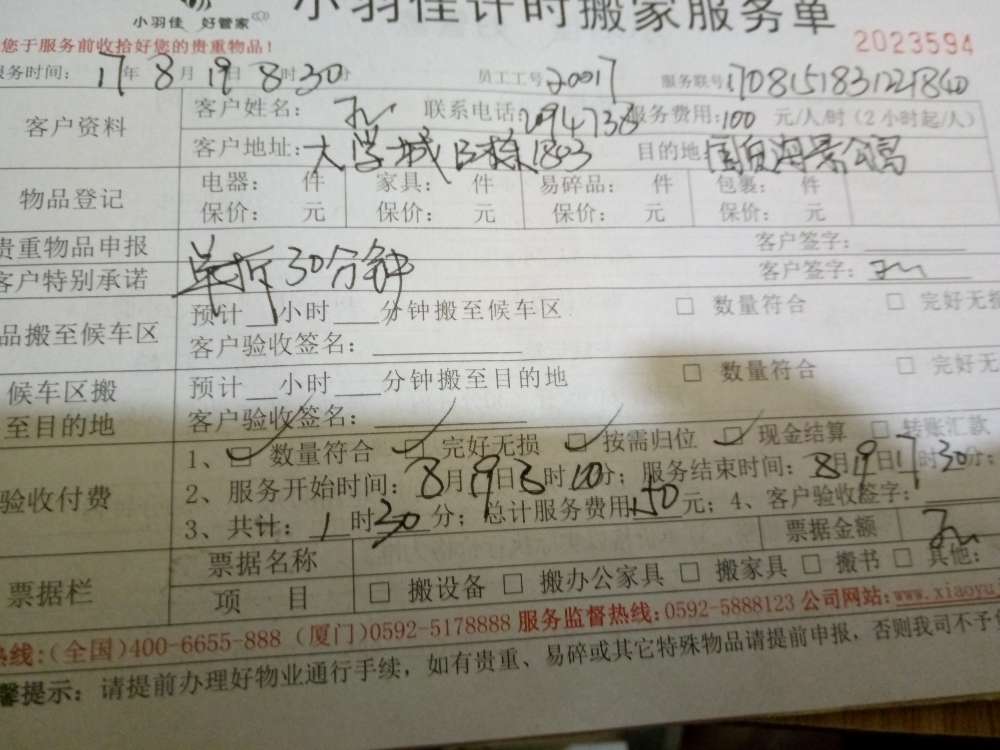 小羽佳 好管家
小羽佳计时搬家服务单
您于服务前收拾好您的贵重物品!
2023594
服务时间: 17年8月19日8时30分 员工工号20017 服务联号
客户资料
客户姓名: 联系电话: 服务费用:100 元/人/时(2小时起/人)
客户地址:大学城B栋1803 目的地 国贸海景公寓
物品登记
电器: 件 家具: 件 易碎品: 件 包裹: 件
保价: 元 保价: 元 保价: 元 保价: 元
贵重物品申报 客户签字:
客户特别承诺 单拆30分钟 客户签字:
品搬至候车区
预计 小时 分钟搬至候车区 □ 数量符合 □ 完好无损
客户验收签名:
候车区搬
至目的地
预计 小时 分钟搬至目的地 □ 数量符合 □ 完好无
客户验收签名:
验收付费
1、☑ 数量符合 ☑ 完好无损 ☑ 按需归位 ☑ 现金结算 □ 转账汇款
2、服务开始时间:8月19日 时 分; 服务结束时间:8月19日 时30分;
3、共计: 1 时30分; 总计服务费用150元; 4、客户验收签字:
票据栏
票据名称 票据金额
项 目 □ 搬设备 □ 搬办公家具 □ 搬家具 □ 搬书 □ 其他:
热线:(全国)400-6655-888 (厦门)0592-5178888 服务监督热线:0592-5888123 公司网站:www.xiaoyu
馨提示: 请提前办理好物业通行手续, 如有贵重、易碎或其它特殊物品请提前申报, 否则我司不予